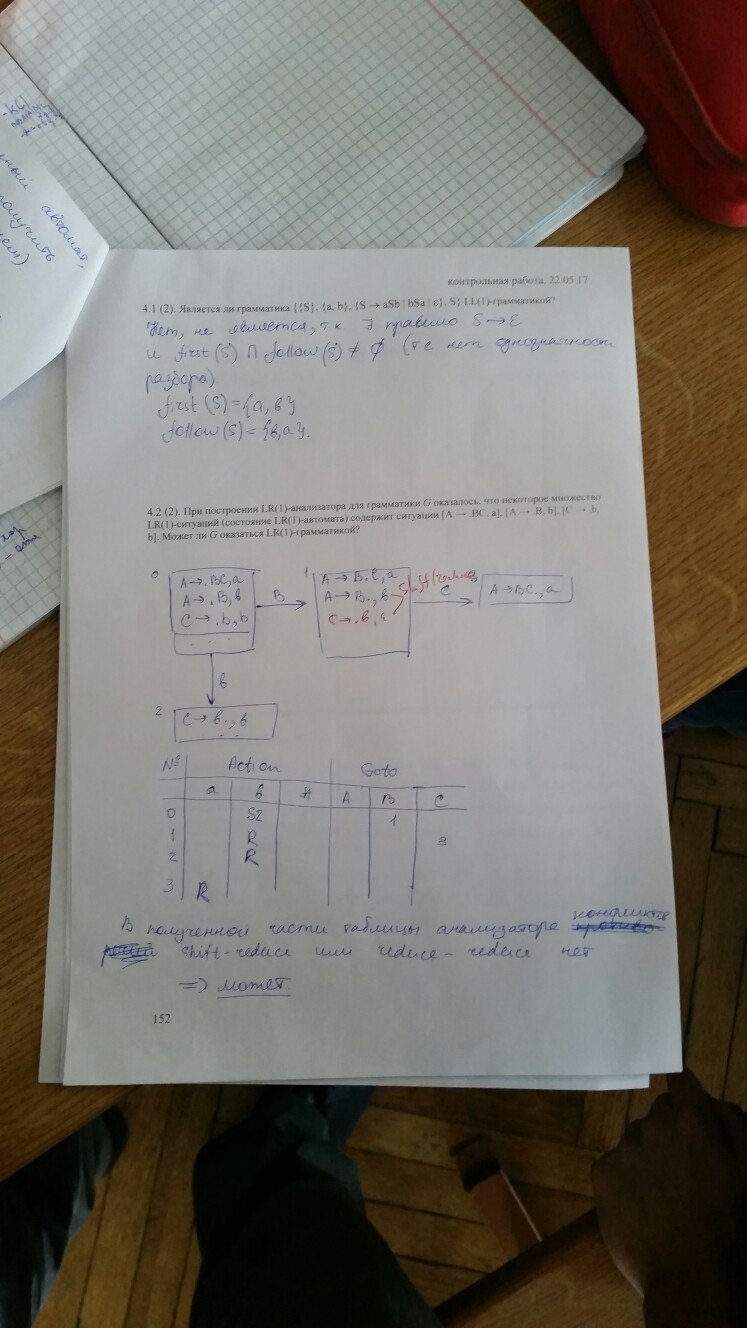 контрольная работа, 22.05.17
4.1 (2). Является ли грамматика {{S}, {a, b}, {S → aSb | bSa | ε}, S} LL(1)-грамматикой?
Нет, не является, т.к ∃ правило S → ε
и first(S) ∩ follow(S) ≠ ∅ (т е нет однозначности
разбора)
first(S) = {a, b}
follow(S) = {b, a}.
4.2 (2). При построении LR(1)-анализатора для грамматики G оказалось, что некоторое множество
LR(1)-ситуаций (состояние LR(1)-автомата) содержит ситуации [A → .BC, a], [A → .B, b], [C → .b,
b]. Может ли G оказаться LR(1)-грамматикой?
0
A → .BC, a
A → .B, b
C → .b, b
B
1
A → B.C, a
A → B., b
C → .b, a
shift/reduce
C
A → BC., a
b
2
C → b., b
№ Action Goto
a b # A B C
0 S2 1
1 R 3
2 R
3 R
В полученной части таблицы анализатора
shift-reduce или reduce-reduce нет
=> может
152